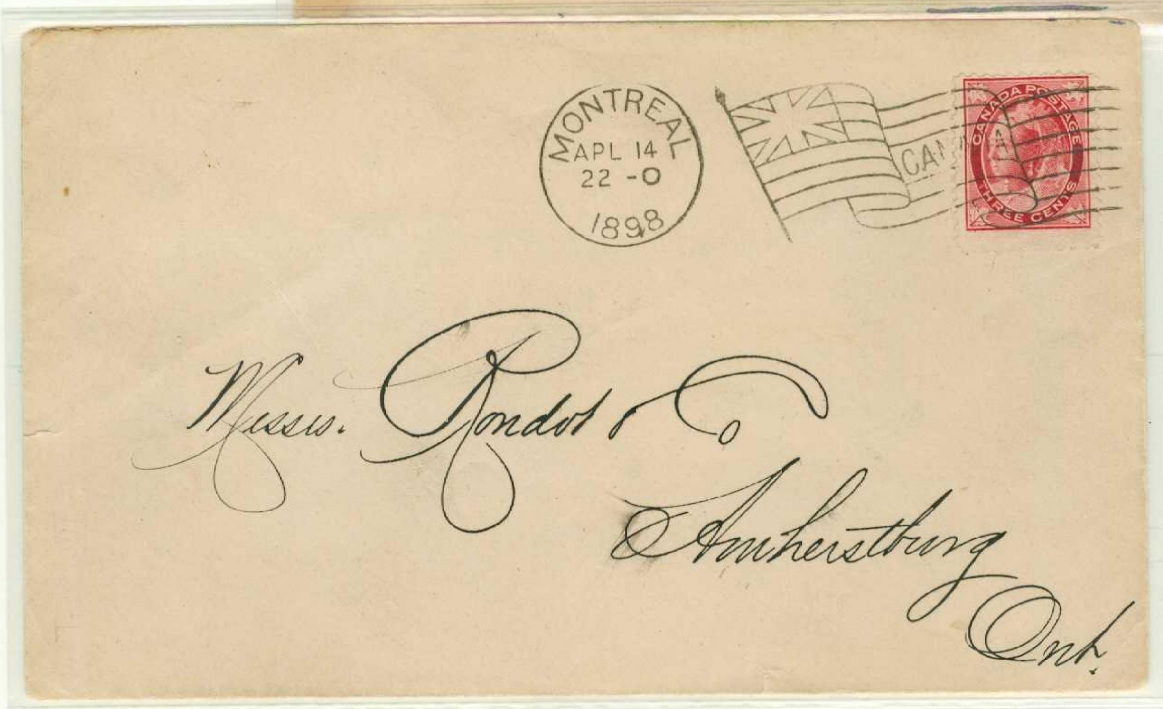 MONTREAL
APL 14
22 - 0
1898
CANADA
CANADA POSTAGE
THREE CENTS
Messrs. Rondot & Co
Amherstburg
Ont.